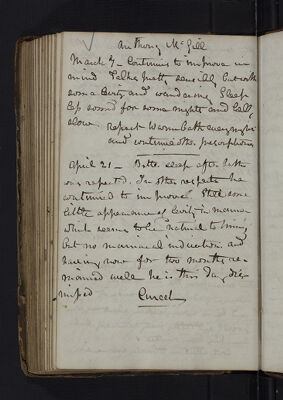 Anthony McGill
March 7 - Continues to improve in
mind Talks pretty sensibly but with
some levity and wandering. Sleep
less sound for some nights and
slow. repeat Warm bath every night
and continue other prescriptions
April 21 - Better sleep after bath
was repeated. In other respects he
continued to improve. Still some
little appearance of levity in manner
which seems to be natural to him,
but no maniacal indication and
having now for two months re-
mained well he is this day dis-
missed Cured